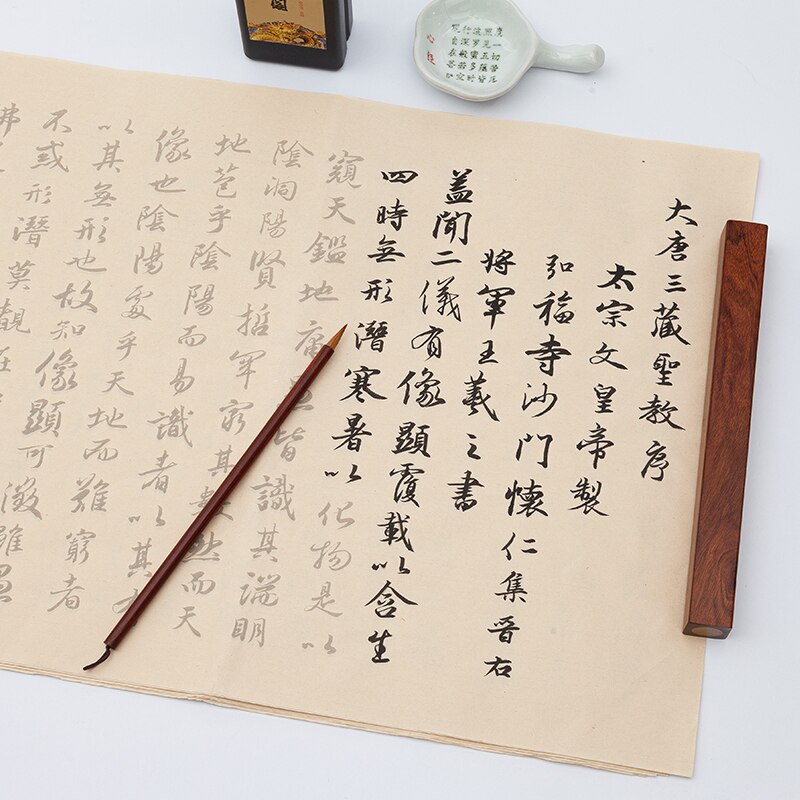 大唐三藏聖教序
太宗文皇帝製
弘福寺沙門懷仁集晉右
将軍王羲之書
蓋聞二儀有像顯覆載以含生
四時無形潛寒暑以化物是以
窺天鑑地庸愚皆識其端明
陰洞陽賢哲罕窮其數然而天
地苞乎陰陽而易識者以其有
像也陰陽處乎天地而難窮者
以其無形也故知像顯可徵雖愚
不惑形潛莫覩在
佛
度一切苦厄
照見五蘊皆
波罗蜜多時
行深般若
心经